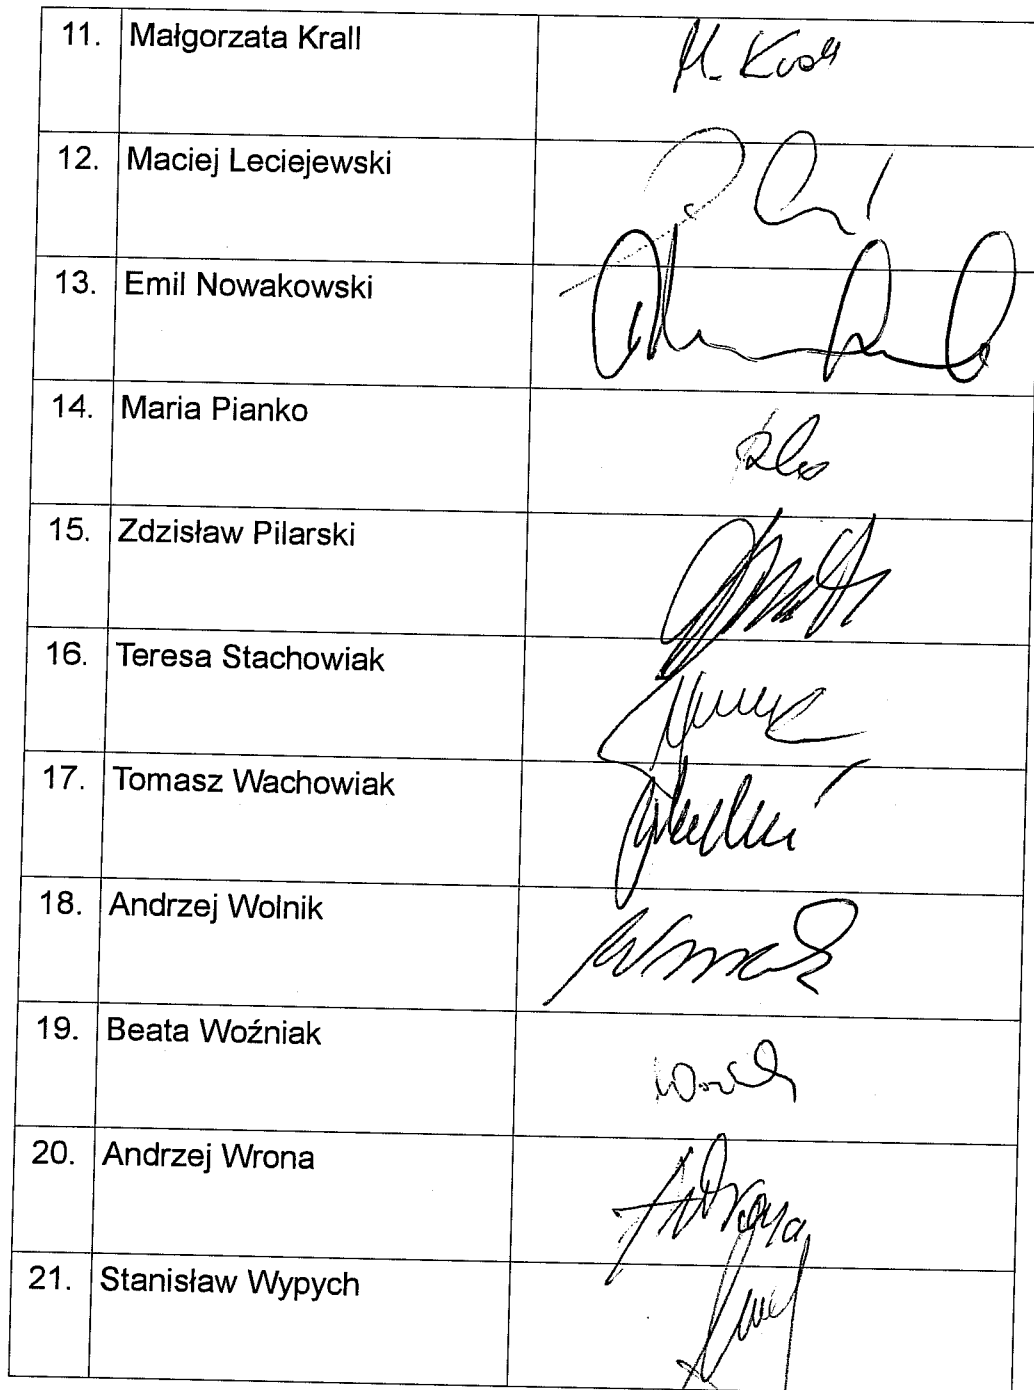 11. Małgorzata Krall M. Krall
12. Maciej Leciejewski
13. Emil Nowakowski
14. Maria Pianko
15. Zdzisław Pilarski
16. Teresa Stachowiak
17. Tomasz Wachowiak
18. Andrzej Wolnik
19. Beata Woźniak
20. Andrzej Wrona AWrona
21. Stanisław Wypych